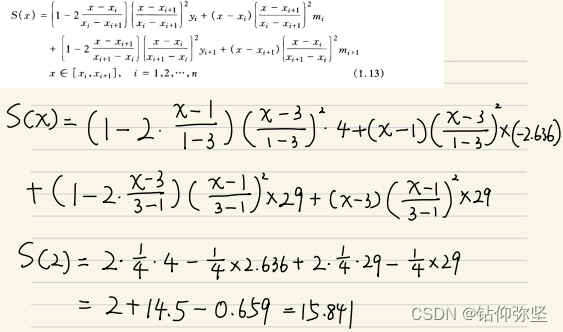 S(x) = [1-2 (x-x_i)/(x_i-x_{i+1})] [(x-x_{i+1})/(x_i-x_{i+1})]^2 y_i + (x-x_i) [(x-x_{i+1})/(x_i-x_{i+1})]^2 m_i
+ [1-2 (x-x_{i+1})/(x_{i+1}-x_i)] [(x-x_i)/(x_{i+1}-x_i)]^2 y_{i+1} + (x-x_{i+1}) [(x-x_i)/(x_{i+1}-x_i)]^2 m_{i+1}
x∈[x_i,x_{i+1}], i=1,2,⋯,n (1.13)
S(x)= (1-2·(x-1)/(1-3)) ((x-3)/(1-3))^2·4+(x-1)((x-3)/(1-3))^2×(-2.636)
+(1-2·(x-3)/(3-1)) ((x-1)/(3-1))^2×29+(x-3)((x-1)/(3-1))^2×29
S(2)= 2·1/4·4-1/4×2.636+2·1/4·29-1/4×29
=2+14.5-0.659=15.841
CSDN @钻仰弥坚